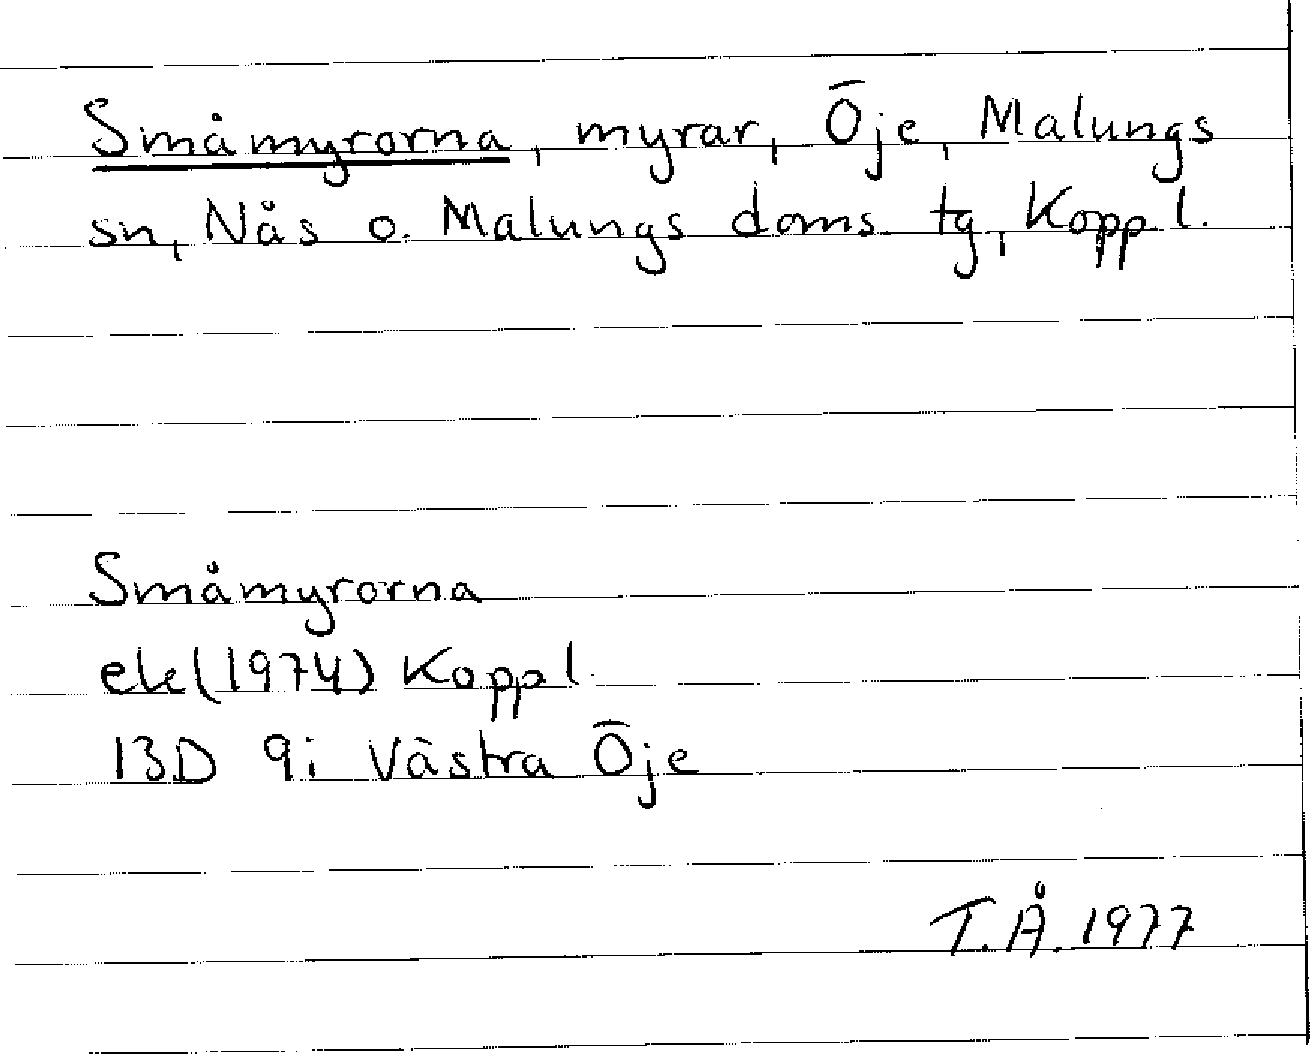 Småmyrorna, myrar, Öje, Malungs
sn, Nås o. Malungs doms tg, Koppl.
Småmyrorna
ek(1974) Koppl.
13D 9i Västra Öje
T.Å. 1977